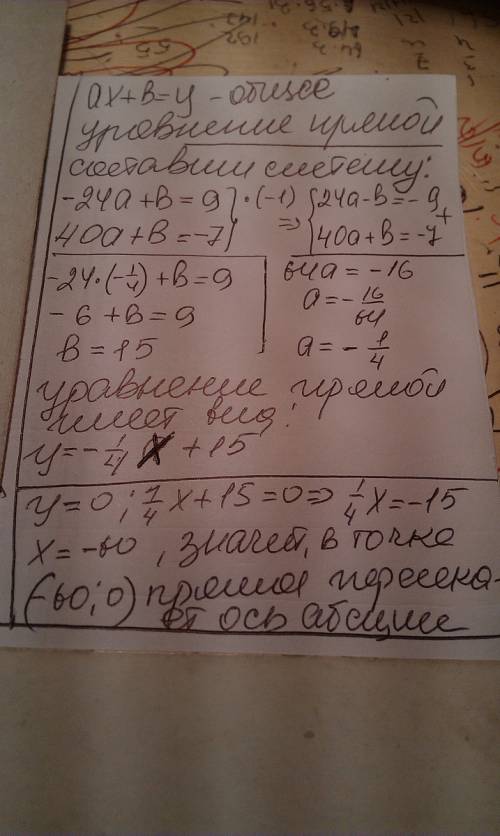 ах+в=у - общее
уровнение прямой
составим систему:
-24а+в=9 } ·(-1) { 24а-в=-9 +
40а+в=-7 } => { 40а+в=-7
-24·(-1/4)+в=9
-6+в=9
в=15
64а=-16
а=-16/64
а=-1/4
уравнение прямой
имеет вид:
у=-1/4 х +15
у=0; 1/4 х+15=0=> 1/4 х=-15
х=-60, значет, в точке
(-60;0) прямая пересека-
ет ось абсцисс
55